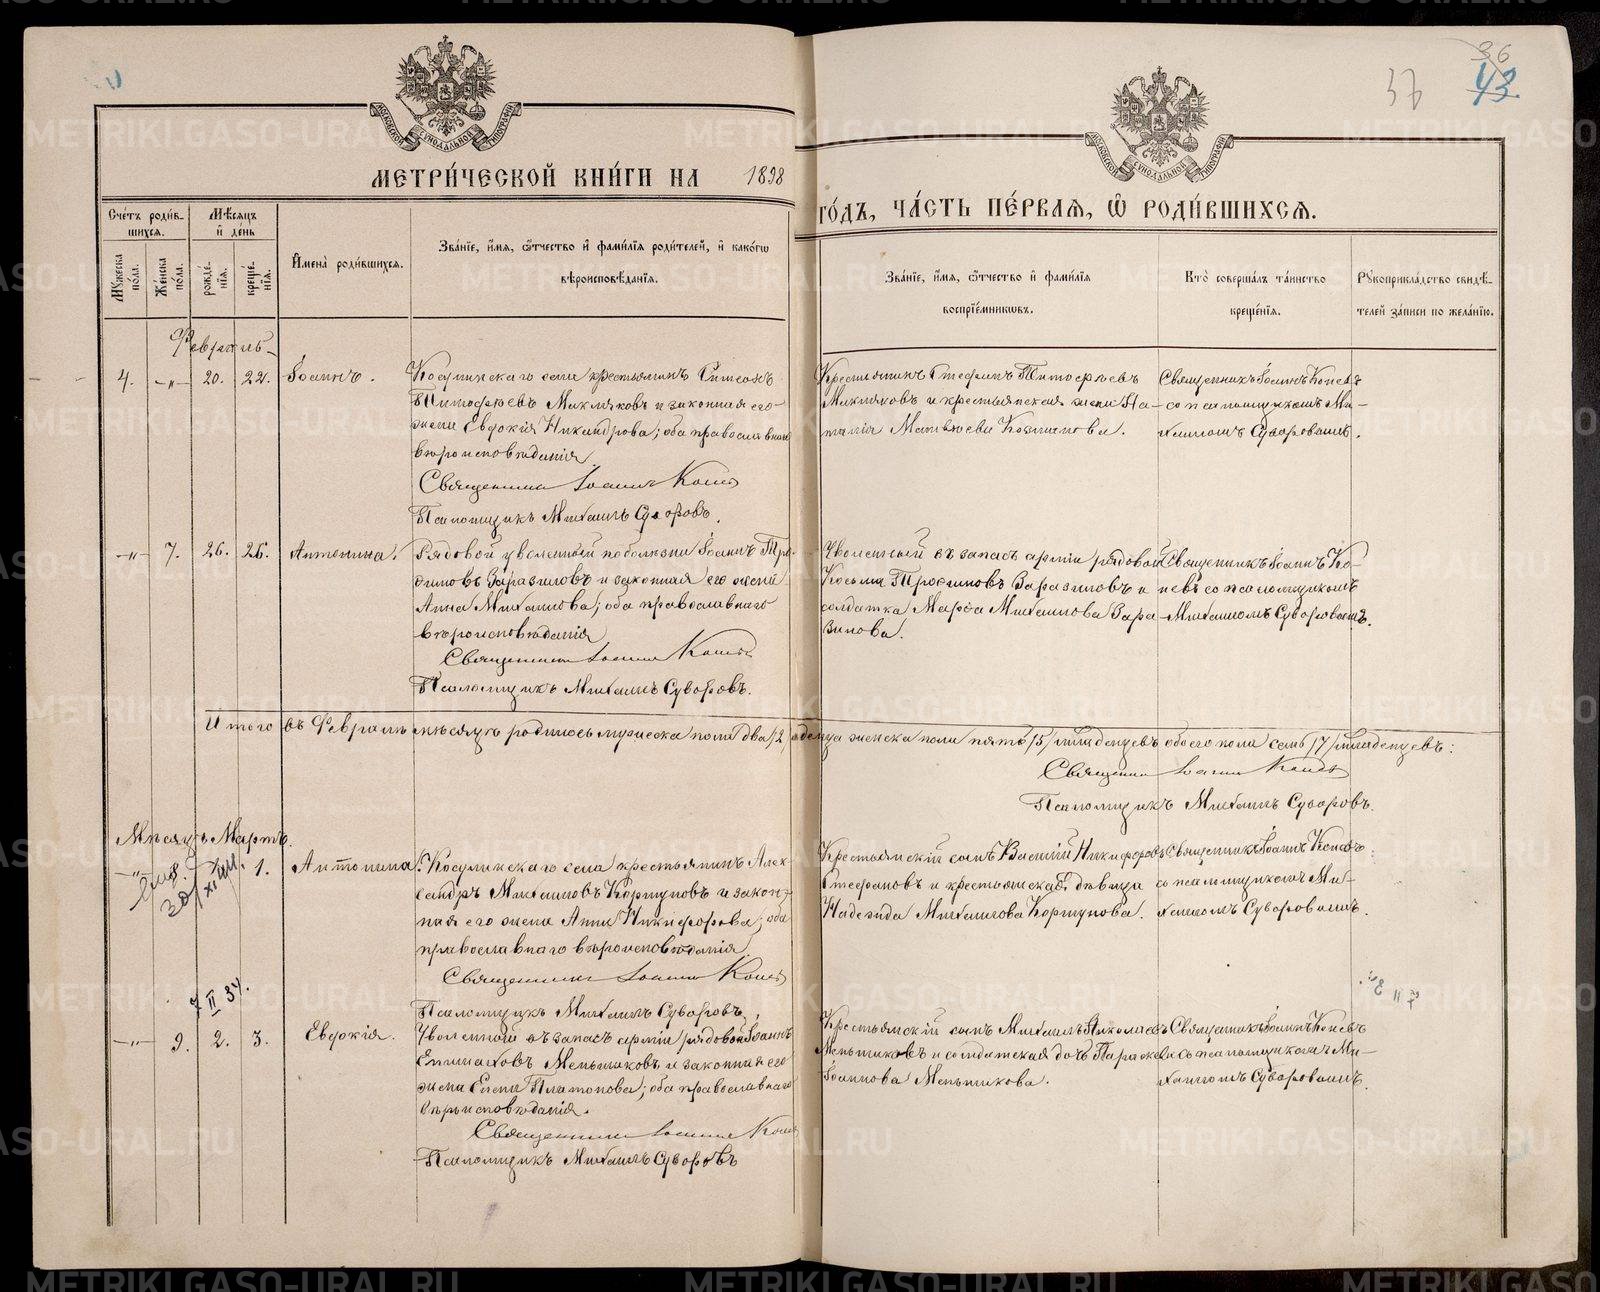 36
37
43.
МОСКОВСКОЙ СѴНОДАЛЬНОЙ ТИПОГРАФІИ
МОСКОВСКОЙ СѴНОДАЛЬНОЙ ТИПОГРАФІИ
МЕТРИ́ЧЕСКОЙ КНИ́ГИ НА 1898
ГО́ДЪ, ЧА́СТЬ ПЕ́РВАЯ, Ѽ РОДИ́ВШИХСЯ.
Сче́тъ роди́в-
шихся.
Мѣ́сяцъ
и҆ де́нь
Мꙋ́жеска по́ла.
Же́нска по́ла.
рожде́-
нія.
креще́-
нія.
И҆мена̀ роди́вшихся.
Зва́ніе, и҆́мя, ѻ҆́тчество и҆ фами́лія роди́телей, и҆ како́гѡ
вѣроисповѣ́данія.
Зва́ніе, и҆́мя, ѻ҆́тчество и҆ фами́лія
воспріе́мникѡвъ.
Кто̀ соверша́лъ та́инство
креще́нія.
Рꙋкоприкла́дство свидѣ́-
телей за́писи по жела́нію.
Февраль
4. -„- 20. 22. Іоаннъ.
Косулинскаго села крестьянинъ Симеонъ
Тимофѣевъ Макляковъ и законная его
жена Евдокія Никандрова; оба православнаго
вѣроисповѣданія
Священникъ Іоаннъ Коневъ
Псаломщикъ Михаилъ Суворовъ.
Крестьянинъ Стефанъ Тимофѣевъ
Макляковъ и крестьянская жена На-
талія Матвѣева
Священникъ Іоаннъ Коневъ
со псаломщикомъ Ми-
хаиломъ Суворовымъ.
-„- 7. 26. 26. Антонина.
Рядовой уволенный по болѣзни Іоаннъ Тро-
фимовъ Заразиловъ и законная его жена
Анна Михаилова; оба православнаго
вѣроисповѣданія
Священникъ Іоаннъ Коневъ
Псаломщикъ Михаилъ Суворовъ.
Уволенный въ запасъ арміи рядовой
Косьма Трофимовъ Заразиловъ и
солдатка Марѳа Михаилова Зара-
зилова.
Священникъ Іоаннъ Ко-
невъ со псаломщикомъ
Михаиломъ Суворовымъ.
Итого въ Февралѣ мѣсяцѣ родилось мужеска пола два /2/ младенца женска пола пять /5/ младенцевъ обоего пола семь /7/ младенцевъ:
Священникъ Іоаннъ Коневъ
Псаломщикъ Михаилъ Суворовъ.
Мѣсяцъ Мартъ.
-„- 1. Антонина.
Косулинскаго села крестьянинъ Алек-
сандръ Михаиловъ Коршуновъ и закон-
ная его жена Анна Никифорова; оба
православнаго вѣроисповѣданія
Священникъ Іоаннъ Коневъ
Псаломщикъ Михаилъ Суворовъ.
Крестьянскій сынъ Василій Никифоровъ
Стефановъ и крестьянская дѣвица
Надежда Михаилова Коршунова.
Священникъ Іоаннъ Коневъ
со псаломщикомъ Ми-
хаиломъ Суворовымъ.
7 II 34.
-„- 9. 2. 3. Евдокія.
Уволенный въ запасъ арміи рядовой Іоаннъ
Меньшиковъ и законная его
жена Елена Платонова; оба православнаго
вѣроисповѣданія.
Священникъ Іоаннъ Коневъ
Псаломщикъ Михаилъ Суворовъ
Крестьянскій сынъ Михаилъ Николаевъ
Меньшиковъ и солдатская дочь Параскева
Іоаннова Меньшикова.
Священникъ Іоаннъ Коневъ
со псаломщикомъ Ми-
хаиломъ Суворовымъ.
METRIKI.GASO-URAL.RU